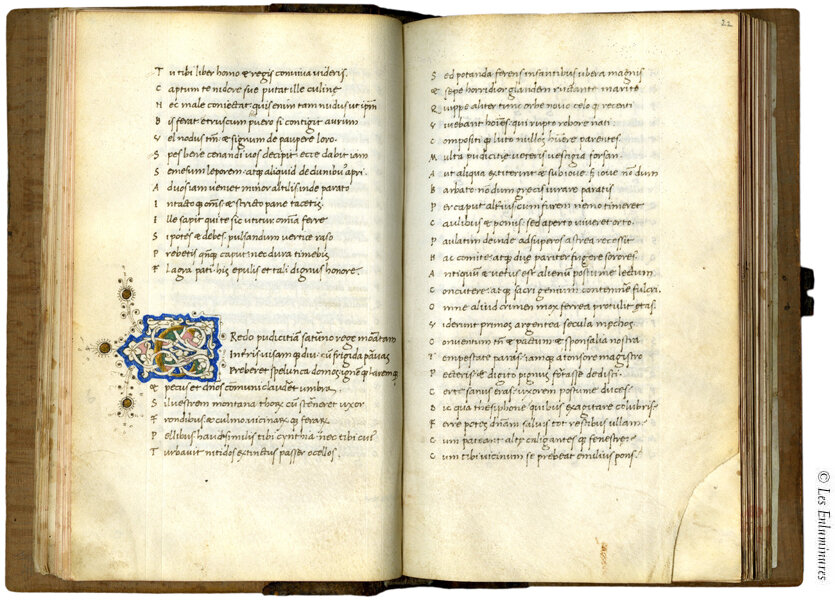 Tu tibi liber homo & regis conviva videris.
Captum te nidore sue putat ille culine
Nec male coniectat; quis enim tam nudus ut ip̄m
Bis ferat; etruscum puero si contigit aurum
Vel nodus tm̄ & signum de paupere loro.
Spes bene cenandi vos decipit ecce dabit iam
Semesum leporem atq; aliquid de clunibus apri
Ad uos iam veniet minor altilis inde parato
Intacto q; oms̄ & stricto pane tacetis.
Ille sapit qui te sic utitur omīa ferre
Si potes & debes pulsandum vertice raso
Prebebis qn̄q; caput nec dura timebis
Flagra pati his epulis et tali dignus honore.
Credo pudicitiā saturno rege moratam
In terris uisamq; diu cū frigida parvas
Preberet spelunca domos ignēq; laremq;
& pecus et dnos communi clauderet umbra
Siluestrem montana thorū cū sterneret uxor
Frondibus & culmo vicinarūq; ferarū
Pellibus haud similis tibi cynthia nec tibi cuiꝰ
Turbavit nitidos extinctus passer ocellos.
22
Sed potanda ferens infantibus ubera magnis
& sepe horridior glandem ructante marito
Quippe aliter tunc orbe novo celo q; recenti
Vivebant hoīes; qui rupto robore nati
Compositi q; luto nullos habuere parentes
Multa pudicitie veteris vestigia forsan
Aut aliqua extiterint & sub ioue. s; ioue nōdum
Barbato nōdum grecis iurare paratis
Per caput alterius cum furem nemo timeret
Caulibus & pomis; sed aperto viveret orto
Paulatim deinde ad superos astrea recessit
Hac comite atq; due pariter fugere sorores
Antiquū & vetus est alienū postume lectum
Concutere atq; sacri genium contemnere fulcri.
Omne aliud crimen mox ferrea protulit etas.
Viderunt primos argentea secula mechos
Conventum tn̄ & pactum & sponsalia nostra
Tempestate paras; iamq; a tonsore magistro
Pecteris & digito pignus fortasse dedisti.
Certe sanus eras; uxorem postume ducis
Dic qua thesiphone quibus exagitare colubris
Ferre potes dn̄am salvis tot restibus ullam.
Cum pateant alte caligantes q; fenestre
Cum tibi vicinum se prebeat emilius pons.
© Les Enluminures